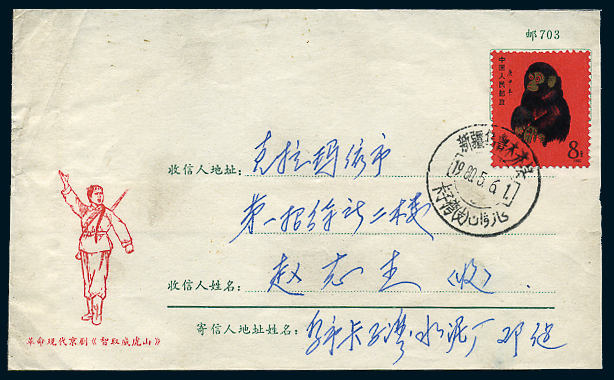 邮703
中国人民邮政
庚申年
8分
新疆乌鲁木齐
1980.5.6.17
收信人地址:克拉玛依市
第一招待所二楼
收信人姓名:赵志杰(收)
寄信人地址姓名:乌市卡子湾水泥厂 邓
革命现代京剧《智取威虎山》